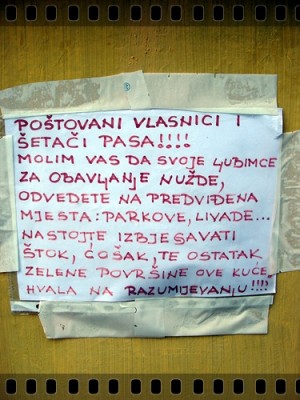 POŠTOVANI VLASNICI I
ŠETAČI PASA!!!!
MOLIM VAS DA SVOJE LJUBIMCE
ZA OBAVLJANJE NUŽDE,
ODVEDETE NA PREDVIĐENA
MJESTA: PARKOVE, LIVADE...
NASTOJTE IZBJEGAVATI
ŠTOK, ĆOŠAK, TE OSTATAK
ZELENE POVRŠINE OVE KUĆE.
HVALA NA RAZUMIJEVANJU!!!!